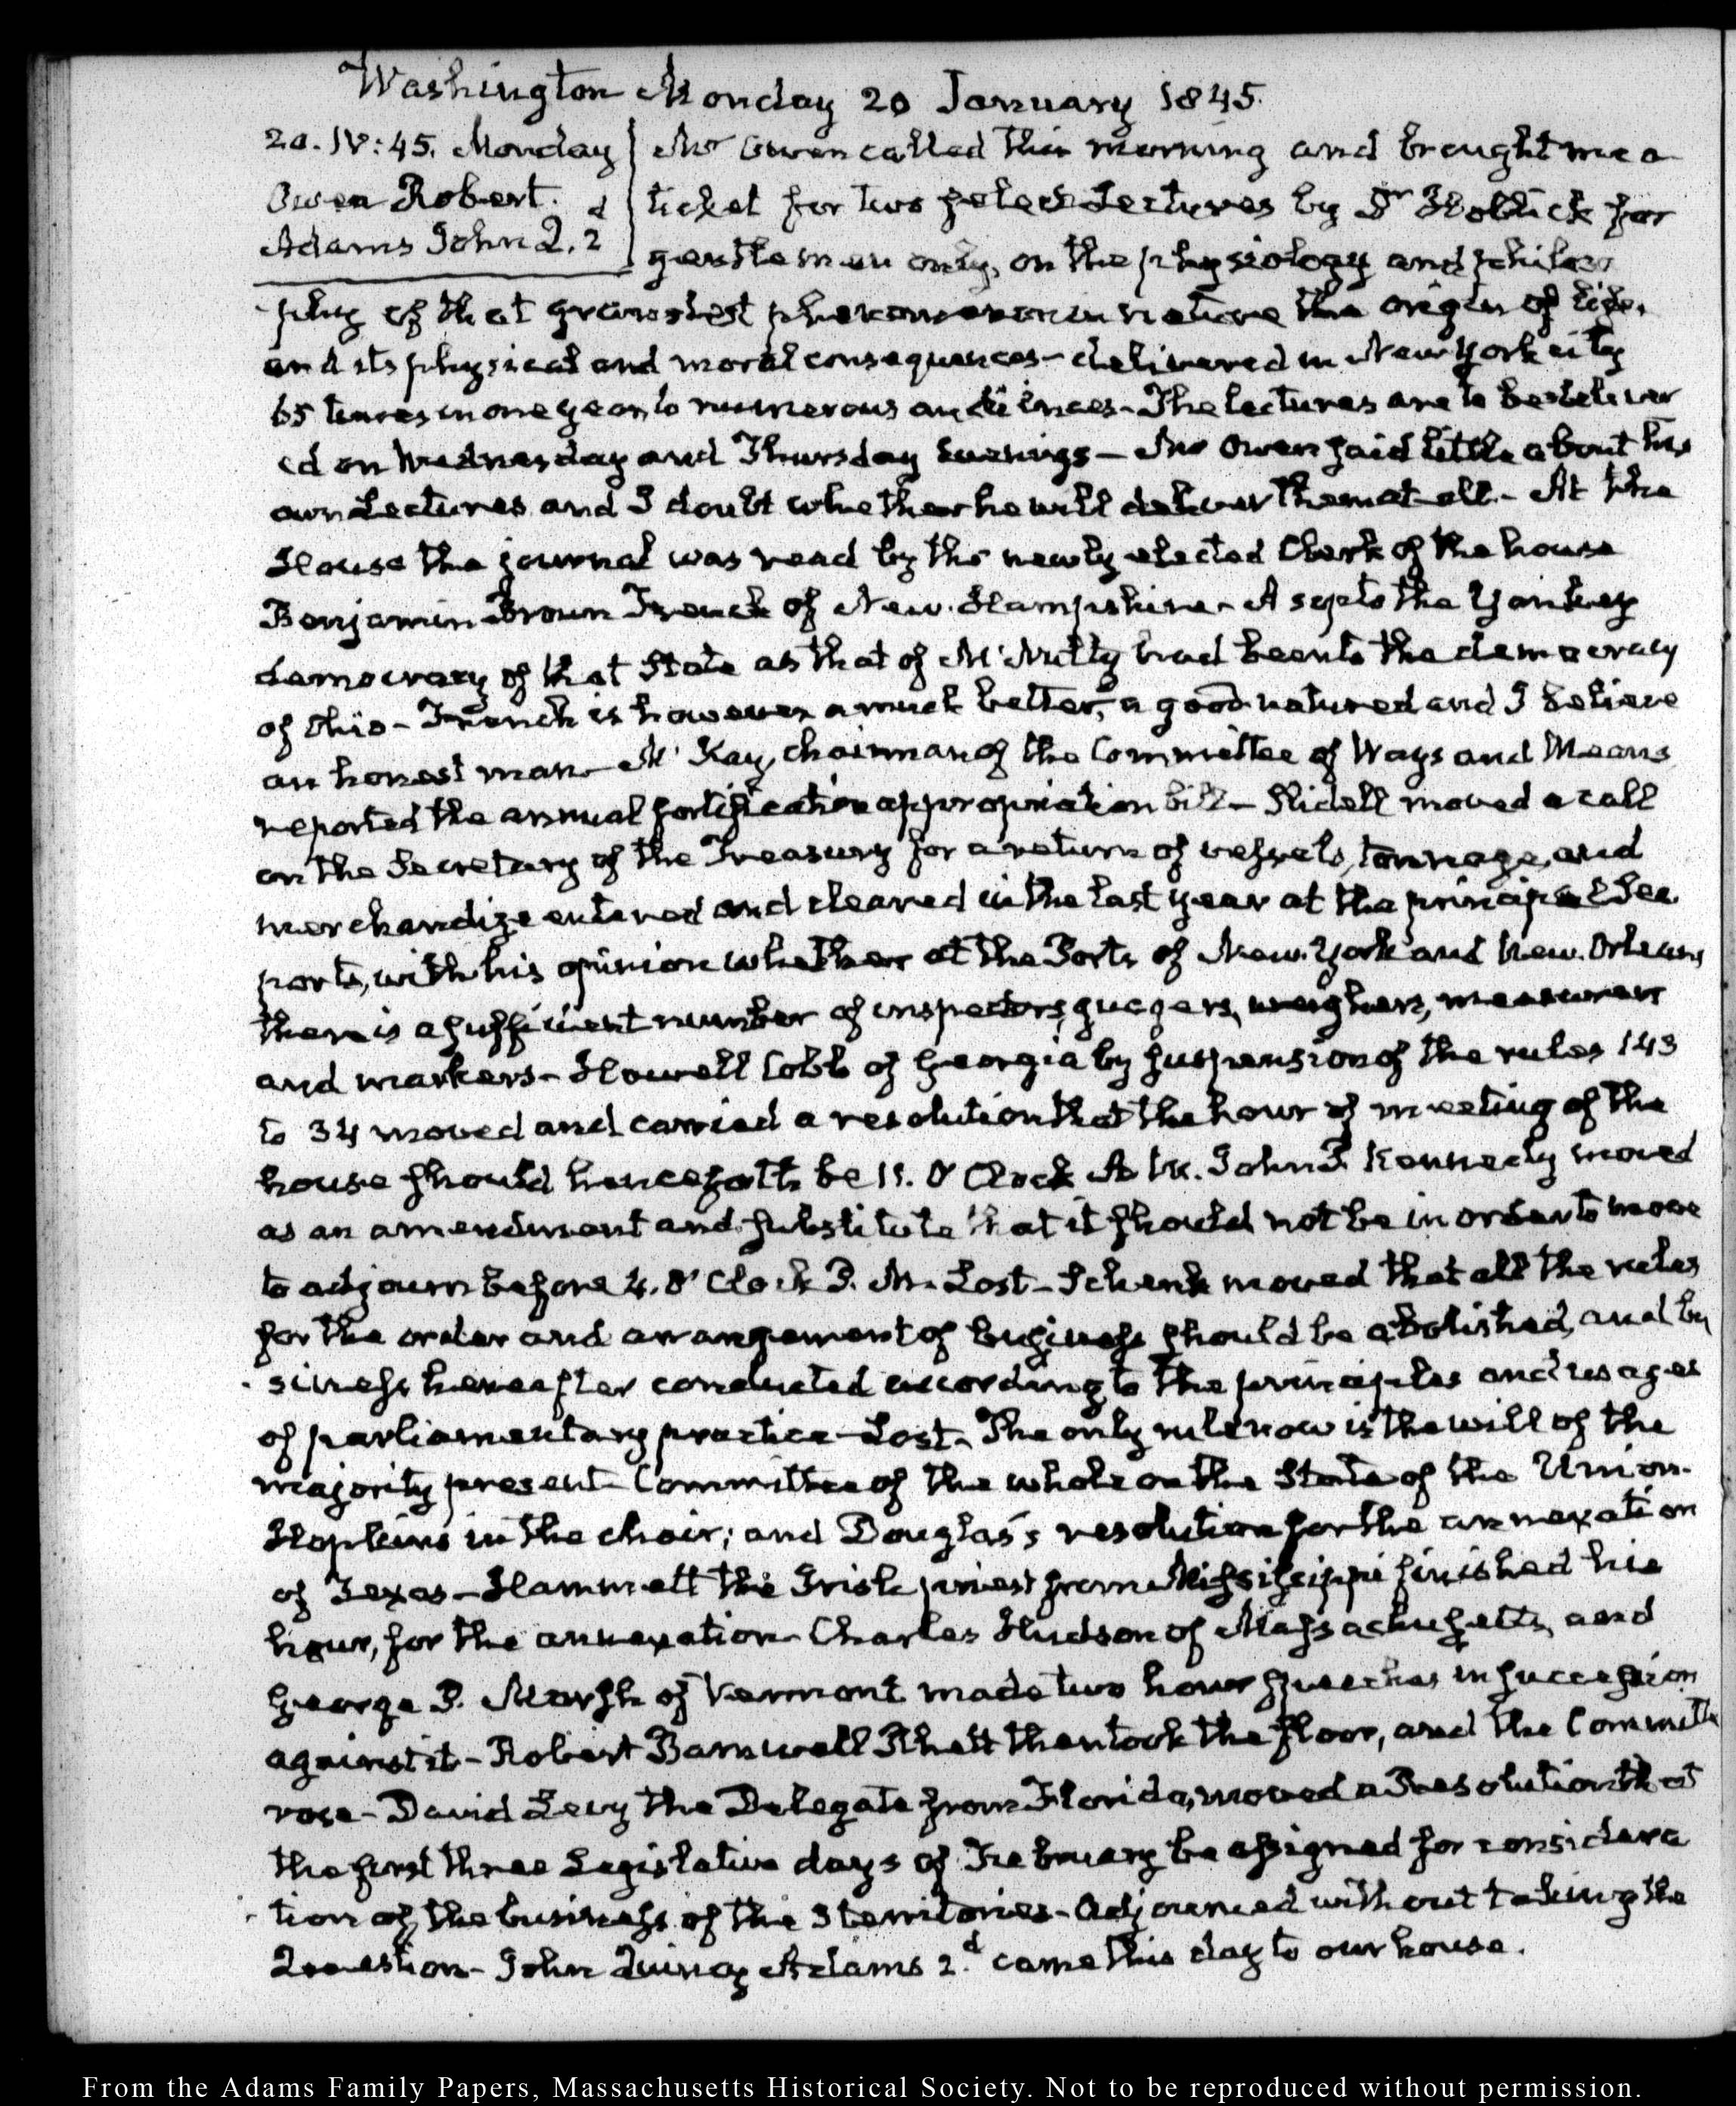 Washington Monday 20 January 1845.
20. IV:45. Monday
Owen Robert.
Adams John Q. 2d
Mr Owen called this morning and brought me a
ticket for two select Lectures by Dr Hollick for
gentlemen only, on the physiology and philoso
phy of that grandest phenomenon in nature the origin of life,
and its physical and moral consequences - delivered in New York city
65 times in one year to numerous audiences - The lectures are to be deliver
ed on Wednesday and Thursday Evenings - Mr Owen said little about his
own Lectures and I doubt whether he will deliver them at all - At the
House the journal was read by the newly elected Clerk of the house
Benjamin Brown French of New Hampshire - A to the Yankey
democracy of that State as that of McNulty had been to the democracy
of Ohio - French is however a much better, a good natured and I believe
an honest man - McKay, chairman of the Committee of Ways and Means
reported the annual fortification appropriation bill - Slidell moved a call
on the Secretary of the Treasury for a return of vessels, tonnage, and
merchandize entered and cleared in the last year at the principal Sea
ports, with his opinion whether at the Ports of New York and New Orleans
there is a sufficient number of inspectors, guagers, weighers, measurers
and markers - Howell Cobb of Georgia by suspension of the rules 143
to 34 moved and carried a resolution that the hour of meeting of the
house should henceforth be 11. O'Clock A M. John P. Kennedy moved
as an amendment and substitute that it should not be in order to move
to adjourn before 4. O'Clock P. M. Lost - Schenk moved that all the rules
for the order and arrangement of business should be abolished, and bu
siness hereafter conducted according to the principles and usages
of parliamentary practice - Lost - The only rule now is the will of the
majority present - Committee of the whole on the State of the Union -
Hopkins in the chair; and Douglas's resolution for the annexation
of Texas - Hammett the Irish priest from Mississippi finished his
hour, for the annexation - Charles Hudson of Massachusetts, and
George P. Marsh of Vermont made two hour speeches in succession
against it - Robert Barnwell Rhett then took the floor, and the Committee
rose - David Levy the Delegate from Florida, moved a Resolution that
the first three Legislative days of February be assigned for considera
tion of the business of the Territories - Adjourned without taking the
Question - John Quincy Adams 2.d came this day to our house.
From the Adams Family Papers, Massachusetts Historical Society. Not to be reproduced without permission.